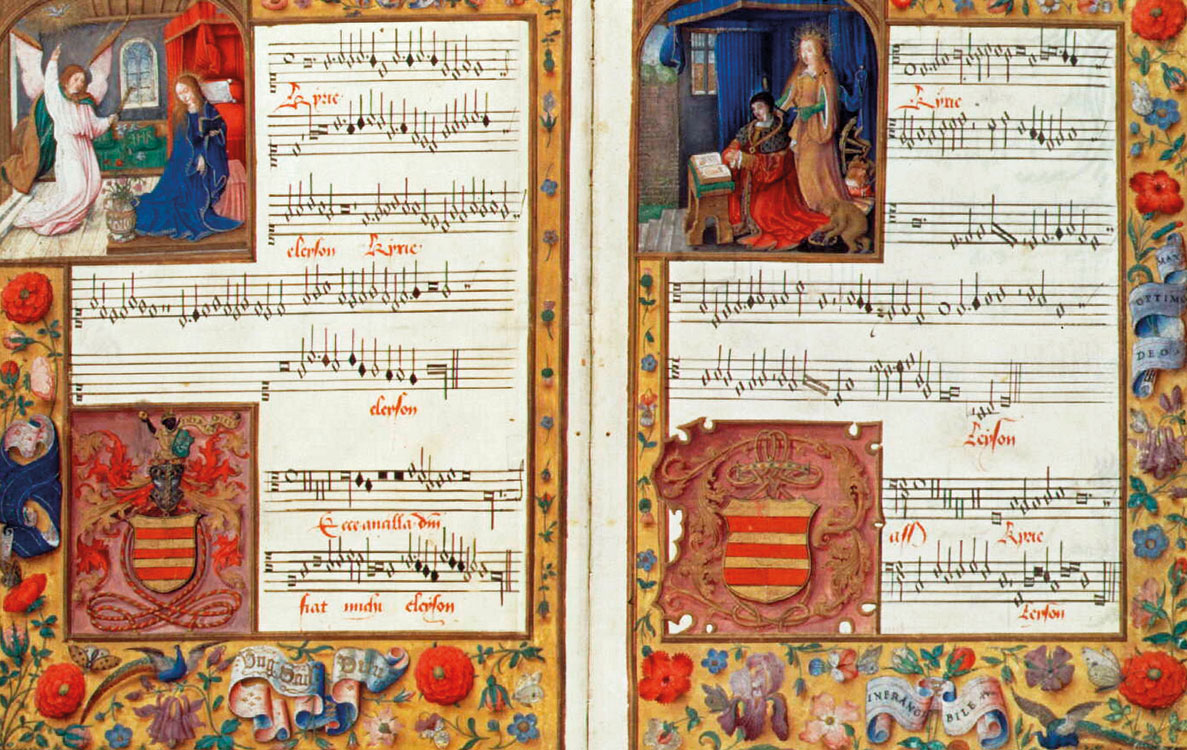 Kyrie
eleyson Kyrie
eleyson
Ecce ancilla dm
fiat michi eleyson
Vng Seul Dieu
Kyrie
Leyson
Kyrie
Leyson
OPTIMO
DEO
INFRANGI
BILE